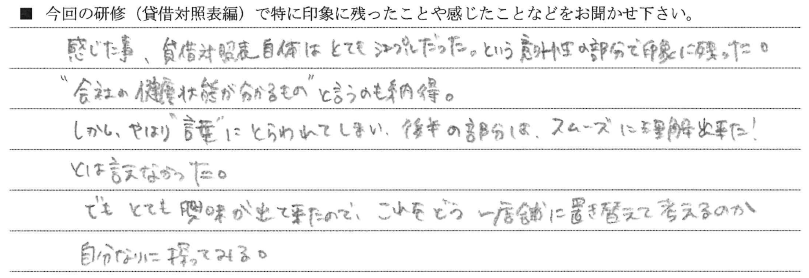 ■ 今回の研修（貸借対照表編）で特に印象に残ったことや感じたことなどをお聞かせ下さい。
感じた事、貸借対照表自体はとてもシンプルだった。という意外性の部分で印象に残った。
"会社の健康状態が分かるもの"と言うのも納得。
しかし、やはり"言葉"にとらわれてしまい、後半の部分は、スムーズに理解出来た！
とは言えなかった。
でも とても興味が出て来たので、これをどう 一店舗に置き替えて考えるのか
自分なりに探ってみる。